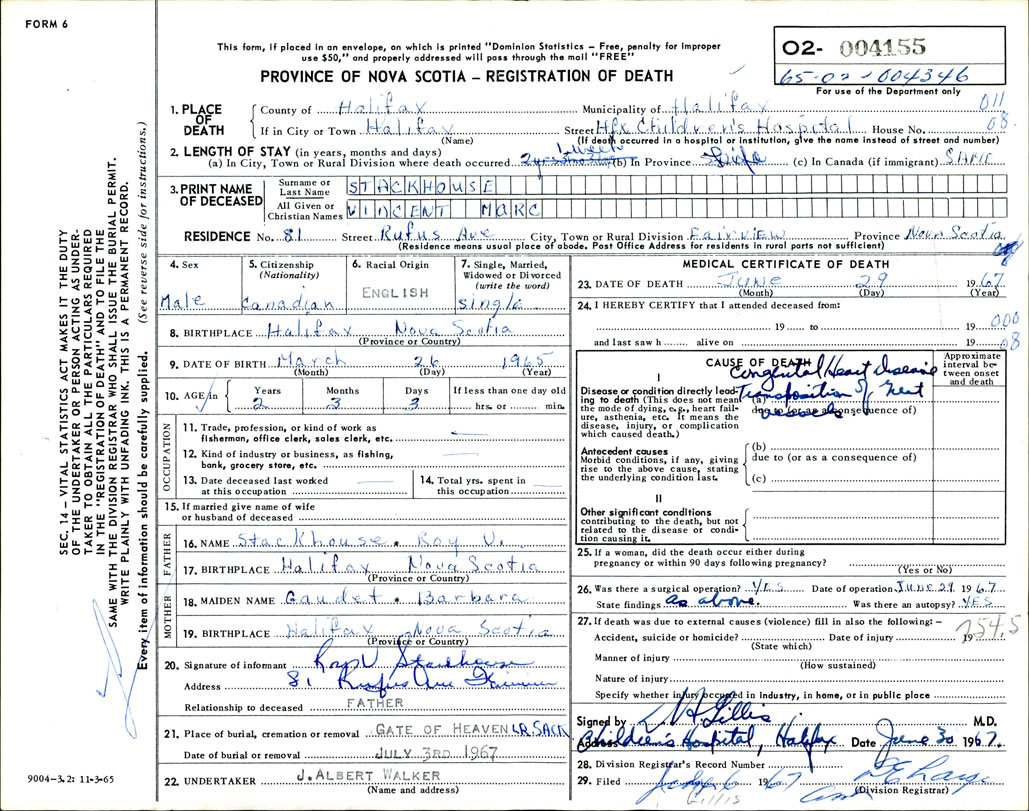 FORM 6
This form, if placed in an envelope, on which is printed "Dominion Statistics – Free, penalty for improper
use $50," and properly addressed will pass through the mail "FREE"
PROVINCE OF NOVA SCOTIA – REGISTRATION OF DEATH
O2- 004155
65-02-004346
For use of the Department only
1. PLACE OF DEATH
County of Halifax Municipality of Halifax 011
If in City or Town Halifax Street Hfx Children's Hospital House No. 08
(Name) (If death occurred in a hospital or institution, give the name instead of street and number)
2. LENGTH OF STAY (in years, months and days) 1 week
(a) In City, Town or Rural Division where death occurred (b) In Province Life (c) In Canada (if immigrant) SAME
3. PRINT NAME OF DECEASED
Surname or Last Name STACKHOUSE
All Given or Christian Names VINCENT MARC
RESIDENCE No. 81 Street Rufus Ave City, Town or Rural Division Fairview Province Nova Scotia
(Residence means usual place of abode. Post Office Address for residents in rural parts not sufficient)
4. Sex Male
5. Citizenship (Nationality) Canadian
6. Racial Origin ENGLISH
7. Single, Married, Widowed or Divorced (write the word) single
8. BIRTHPLACE Halifax Nova Scotia
(Province or Country)
9. DATE OF BIRTH March 26 1965
(Month) (Day) (Year)
10. AGE in Years 2 Months 3 Days 3 If less than one day old hrs. or min.
OCCUPATION
11. Trade, profession, or kind of work as
fisherman, office clerk, sales clerk, etc.
12. Kind of industry or business, as fishing,
bank, grocery store, etc.
13. Date deceased last worked
at this occupation
14. Total yrs. spent in
this occupation
15. If married give name of wife
or husband of deceased
FATHER
16. NAME Stackhouse. Roy V.
17. BIRTHPLACE Halifax Nova Scotia
(Province or Country)
MOTHER
18. MAIDEN NAME Gaudet. Barbara
19. BIRTHPLACE Halifax Nova Scotia
(Province or Country)
20. Signature of informant Roy V Stackhouse
Address 81 Rufus Ave Fairview
Relationship to deceased FATHER
21. Place of burial, cremation or removal GATE OF HEAVEN LR. SACK
Date of burial or removal JULY 3RD 1967
22. UNDERTAKER J. ALBERT WALKER
(Name and address)
MEDICAL CERTIFICATE OF DEATH
23. DATE OF DEATH JUNE 29 1967
(Month) (Day) (Year)
24. I HEREBY CERTIFY that I attended deceased from:
19 to 19 000
and last saw h alive on 19 08
CAUSE OF DEATH
Approximate interval between onset and death
I
Congenital Heart Disease
Disease or condition directly leading to death (This does not mean the mode of dying, e.g., heart failure, asthenia, etc. It means the disease, injury, or complication which caused death.)
(a) Transposition of Great vessels
due to (or as a consequence of)
Antecedent causes
Morbid conditions, if any, giving rise to the above cause, stating the underlying condition last.
(b)
due to (or as a consequence of)
(c)
II
Other significant conditions
contributing to the death, but not related to the disease or condition causing it.
25. If a woman, did the death occur either during
pregnancy or within 90 days following pregnancy?
(Yes or No)
26. Was there a surgical operation? YES Date of operation JUNE 29 1967
State findings as above. Was there an autopsy? YES
27. If death was due to external causes (violence) fill in also the following: – 754.5
Accident, suicide or homicide? Date of injury 19
(State which)
Manner of injury
(How sustained)
Nature of injury
Specify whether injury occurred in industry, in home, or in public place
Signed by Gillis M.D.
Address Children's Hospital, Halifax Date June 30 1967.
28. Division Registrar's Record Number
29. Filed 1967
(Division Registrar)
Gillis
SEC. 14 – VITAL STATISTICS ACT MAKES IT THE DUTY
OF THE UNDERTAKER OR PERSON ACTING AS UNDER-
TAKER TO OBTAIN ALL THE PARTICULARS REQUIRED
IN THE "REGISTRATION OF DEATH" AND TO FILE THE
SAME WITH THE DIVISION REGISTRAR WHO SHALL ISSUE THE BURIAL PERMIT.
WRITE PLAINLY WITH UNFADING INK. THIS IS A PERMANENT RECORD.
Every item of information should be carefully supplied. (See reverse side for instructions.)
9004-3.2: 11-3-65